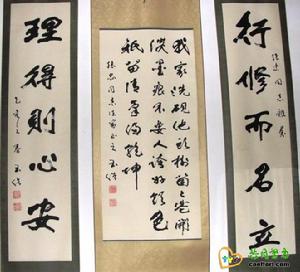 行修而名立
我家洗硯池頭樹箇花開
淡墨痕不要人誇好顏色
祇留清氣滿乾坤
理得則心安